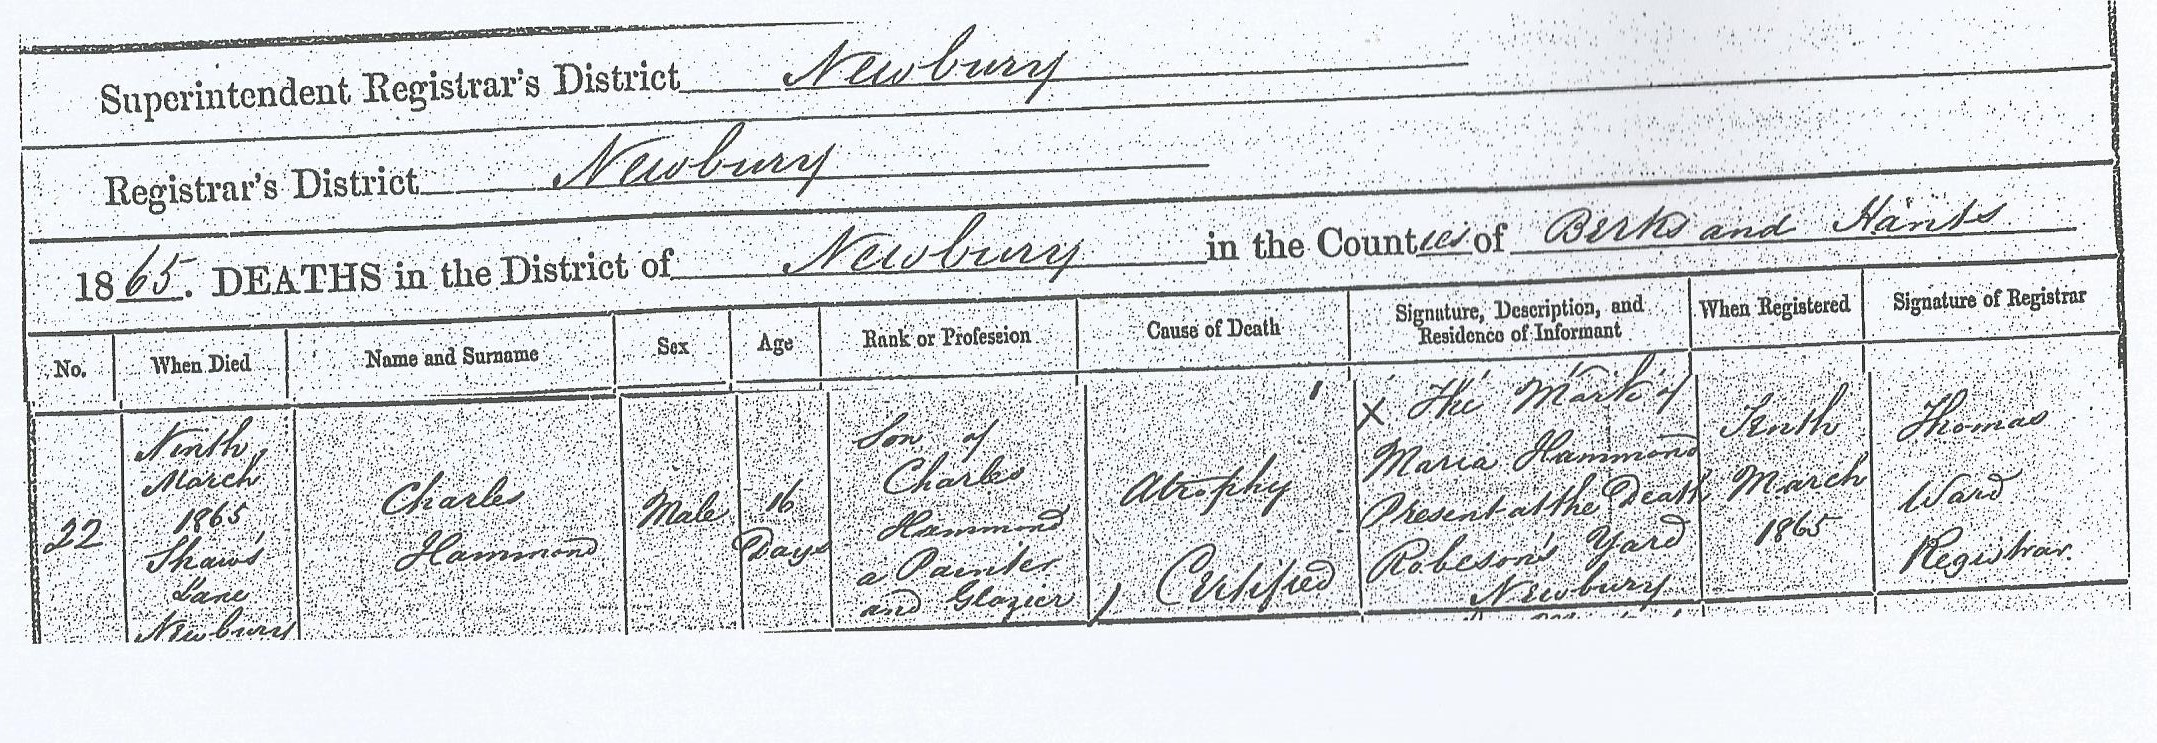 Superintendent Registrar's District Newbury
Registrar's District Newbury
1865. DEATHS in the District of Newbury in the Counties of Berks and Hants
No. When Died Name and Surname Sex Age Rank or Profession Cause of Death Signature, Description, and Residence of Informant When Registered Signature of Registrar
22
Ninth
March
1865
Shaws
Lane
Newbury
Charles
Hammond
Male
16
Days
Son of
Charles
Hammond
a Painter
and Glazier
Atrophy
Certified
X The Mark of
Maria Hammond
Present at the Death
Robeson's Yard
Newbury
Tenth
March
1865
Thomas
Ward
Registrar.